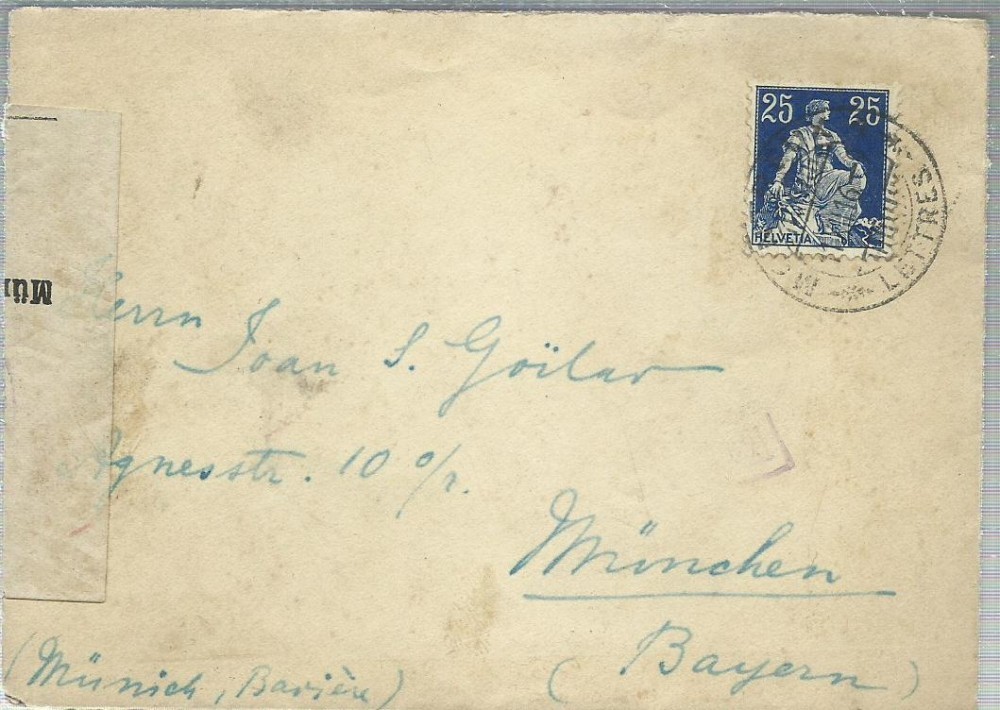 25 25
HELVETIA
LETTRES
Mün
Herrn
Joan S. Göilav
Agnesstr. 10 o/r.
München
(Bayern)
(Münich, Bavière)